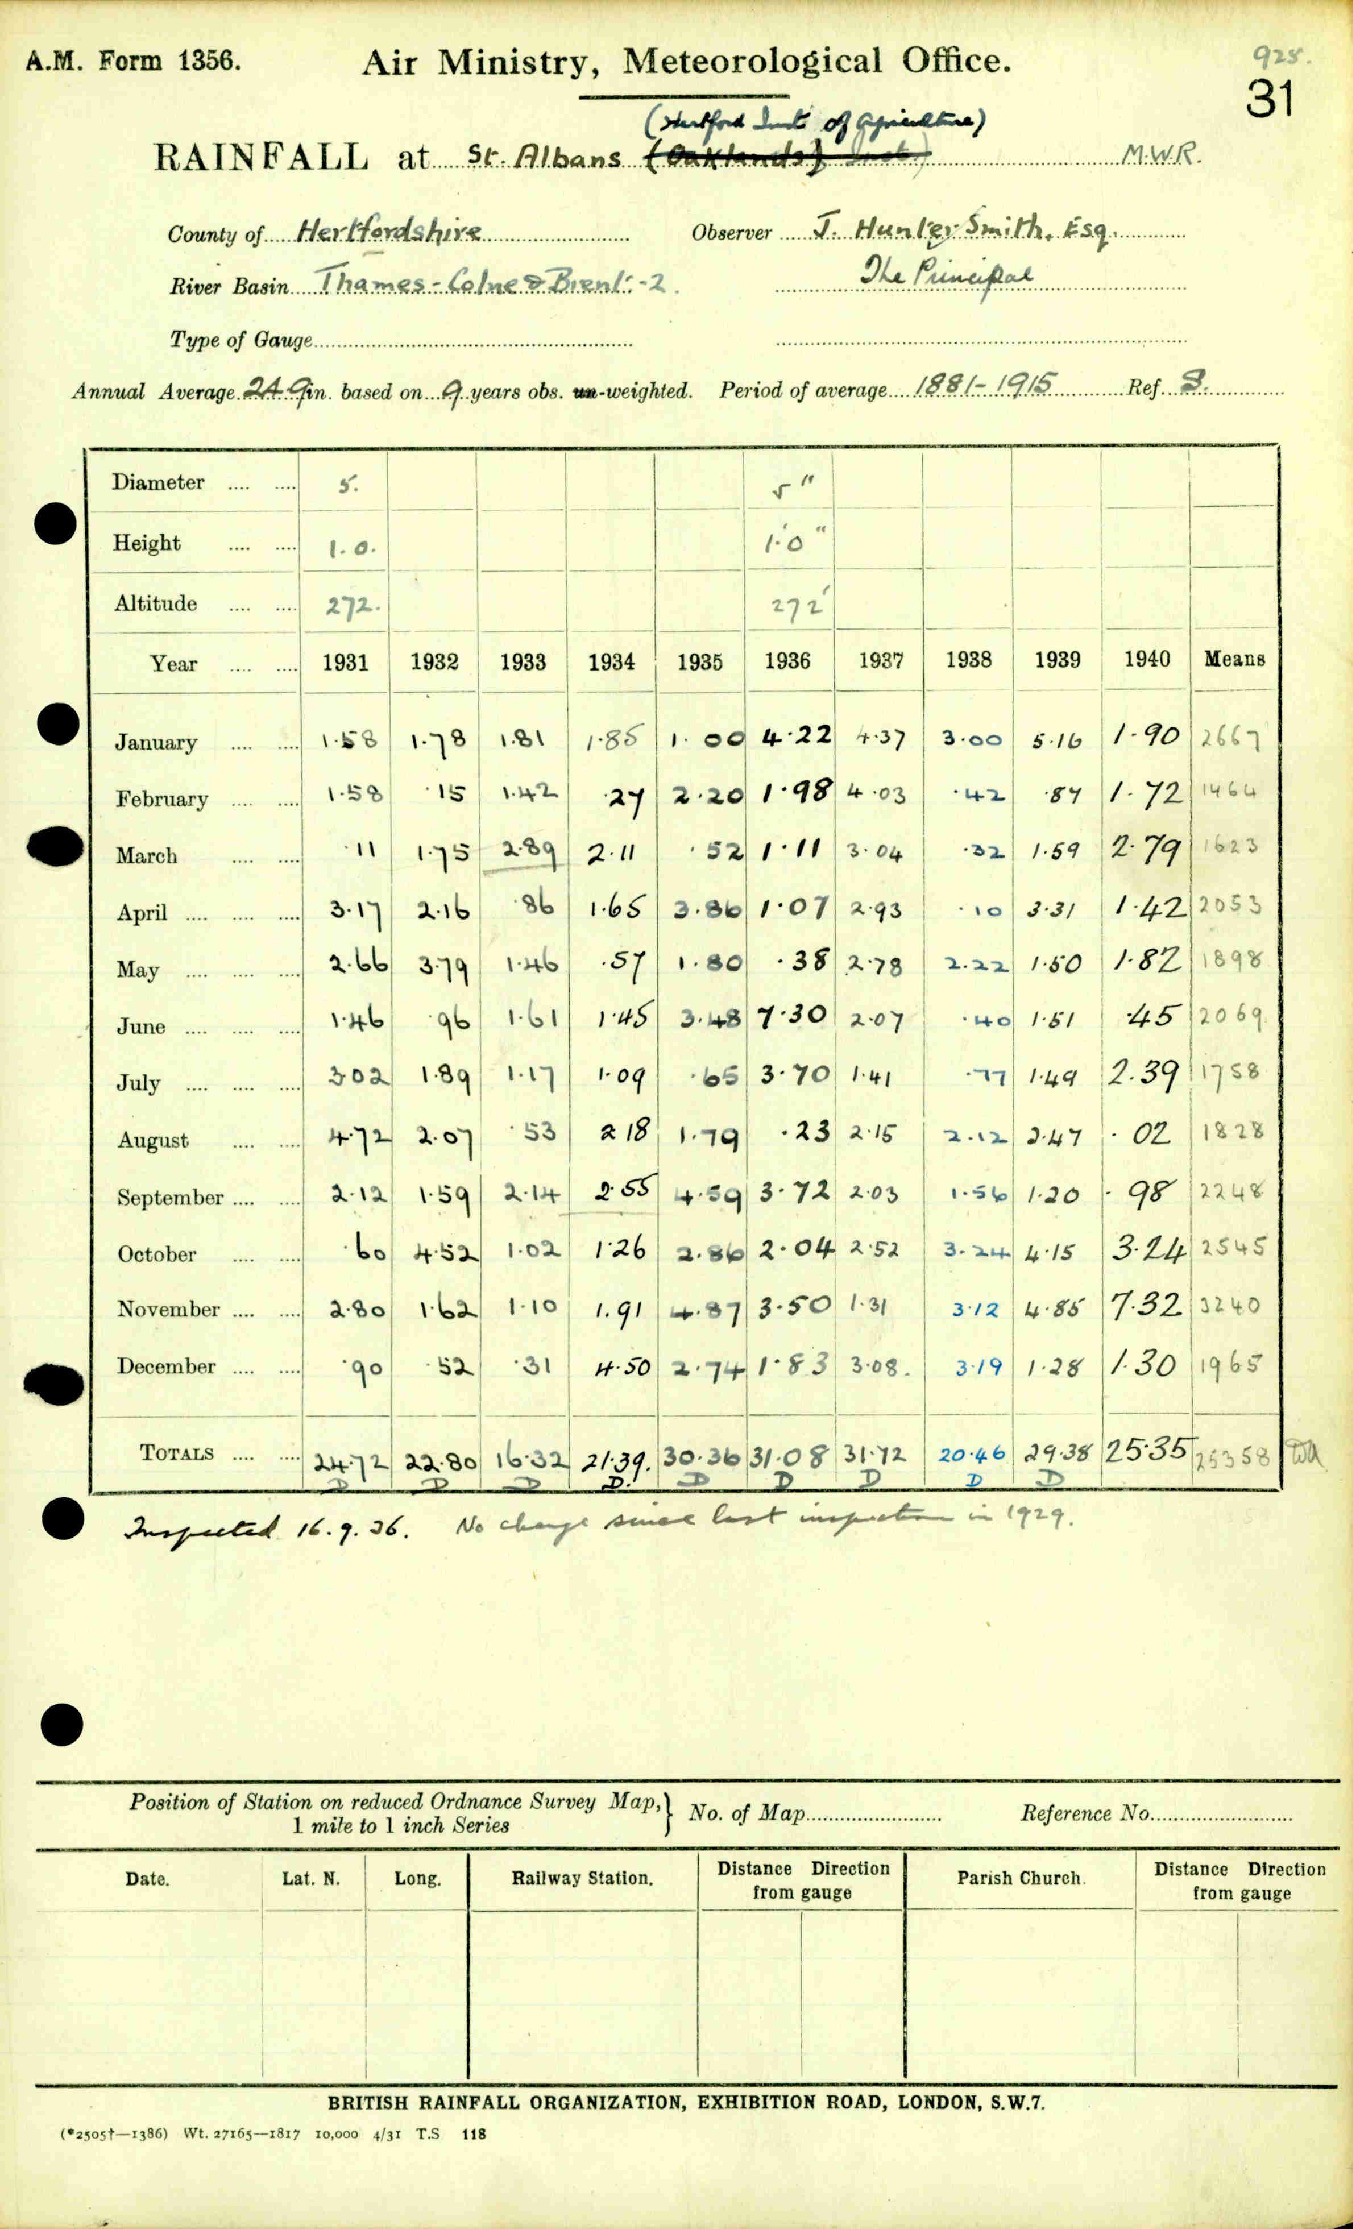 A.M. Form 1356.
Air Ministry, Meteorological Office.
925.
31
(Hertford Inst of Agriculture)
RAINFALL at St. Albans (Oaklands) Inst) M.W.R.
County of Hertfordshire Observer J. Hunter Smith, Esq.
River Basin Thames - Colne & Brent -2. The Principal
Type of Gauge
Annual Average 24.9 in. based on 9 years obs. un-weighted. Period of average 1881-1915 Ref. S.
Diameter .... .... 5. 5"
Height .... .... 1.0. 1'0"
Altitude .... .... 272. 272'
Year .... .... 1931 1932 1933 1934 1935 1936 1937 1938 1939 1940 Means
January .... .... 1.58 1.78 1.81 1.85 1.00 4.22 4.37 3.00 5.16 1.90 2667
February .... .... 1.58 .15 1.42 .27 2.20 1.98 4.03 .42 .87 1.72 1464
March .... .... .11 1.75 2.89 2.11 .52 1.11 3.04 .32 1.59 2.79 1623
April .... .... .... 3.17 2.16 .86 1.65 3.86 1.07 2.93 .10 3.31 1.42 2053
May .... .... .... 2.66 3.79 1.46 .57 1.80 .38 2.78 2.22 1.50 1.82 1898
June .... .... .... 1.46 .96 1.61 1.45 3.48 7.30 2.07 .40 1.51 .45 2069
July .... .... .... 3.02 1.89 1.17 1.09 .65 3.70 1.41 .77 1.49 2.39 1758
August .... .... 4.72 2.07 .53 2.18 1.79 .23 2.15 2.12 2.47 .02 1828
September .... .... 2.12 1.59 2.14 2.55 4.59 3.72 2.03 1.56 1.20 .98 2248
October .... .... .60 4.52 1.02 1.26 2.86 2.04 2.52 3.24 4.15 3.24 2545
November .... .... 2.80 1.62 1.10 1.91 4.87 3.50 1.31 3.12 4.85 7.32 3240
December .... .... .90 .52 .31 4.50 2.74 1.83 3.08. 3.19 1.28 1.30 1965
TOTALS .... .... 24.72 22.80 16.32 21.39. 30.36 31.08 31.72 20.46 29.38 25.35 25358
D D D D. D D D D D
Inspected 16.9.36. No change since last inspection in 1929.
Position of Station on reduced Ordnance Survey Map,} No. of Map Reference No.
1 mile to 1 inch Series
Date. Lat. N. Long. Railway Station. Distance Direction from gauge Parish Church. Distance Direction from gauge
BRITISH RAINFALL ORGANIZATION, EXHIBITION ROAD, LONDON, S.W.7.
(*2505†—1386) Wt. 27165—1817 10,000 4/31 T.S 118